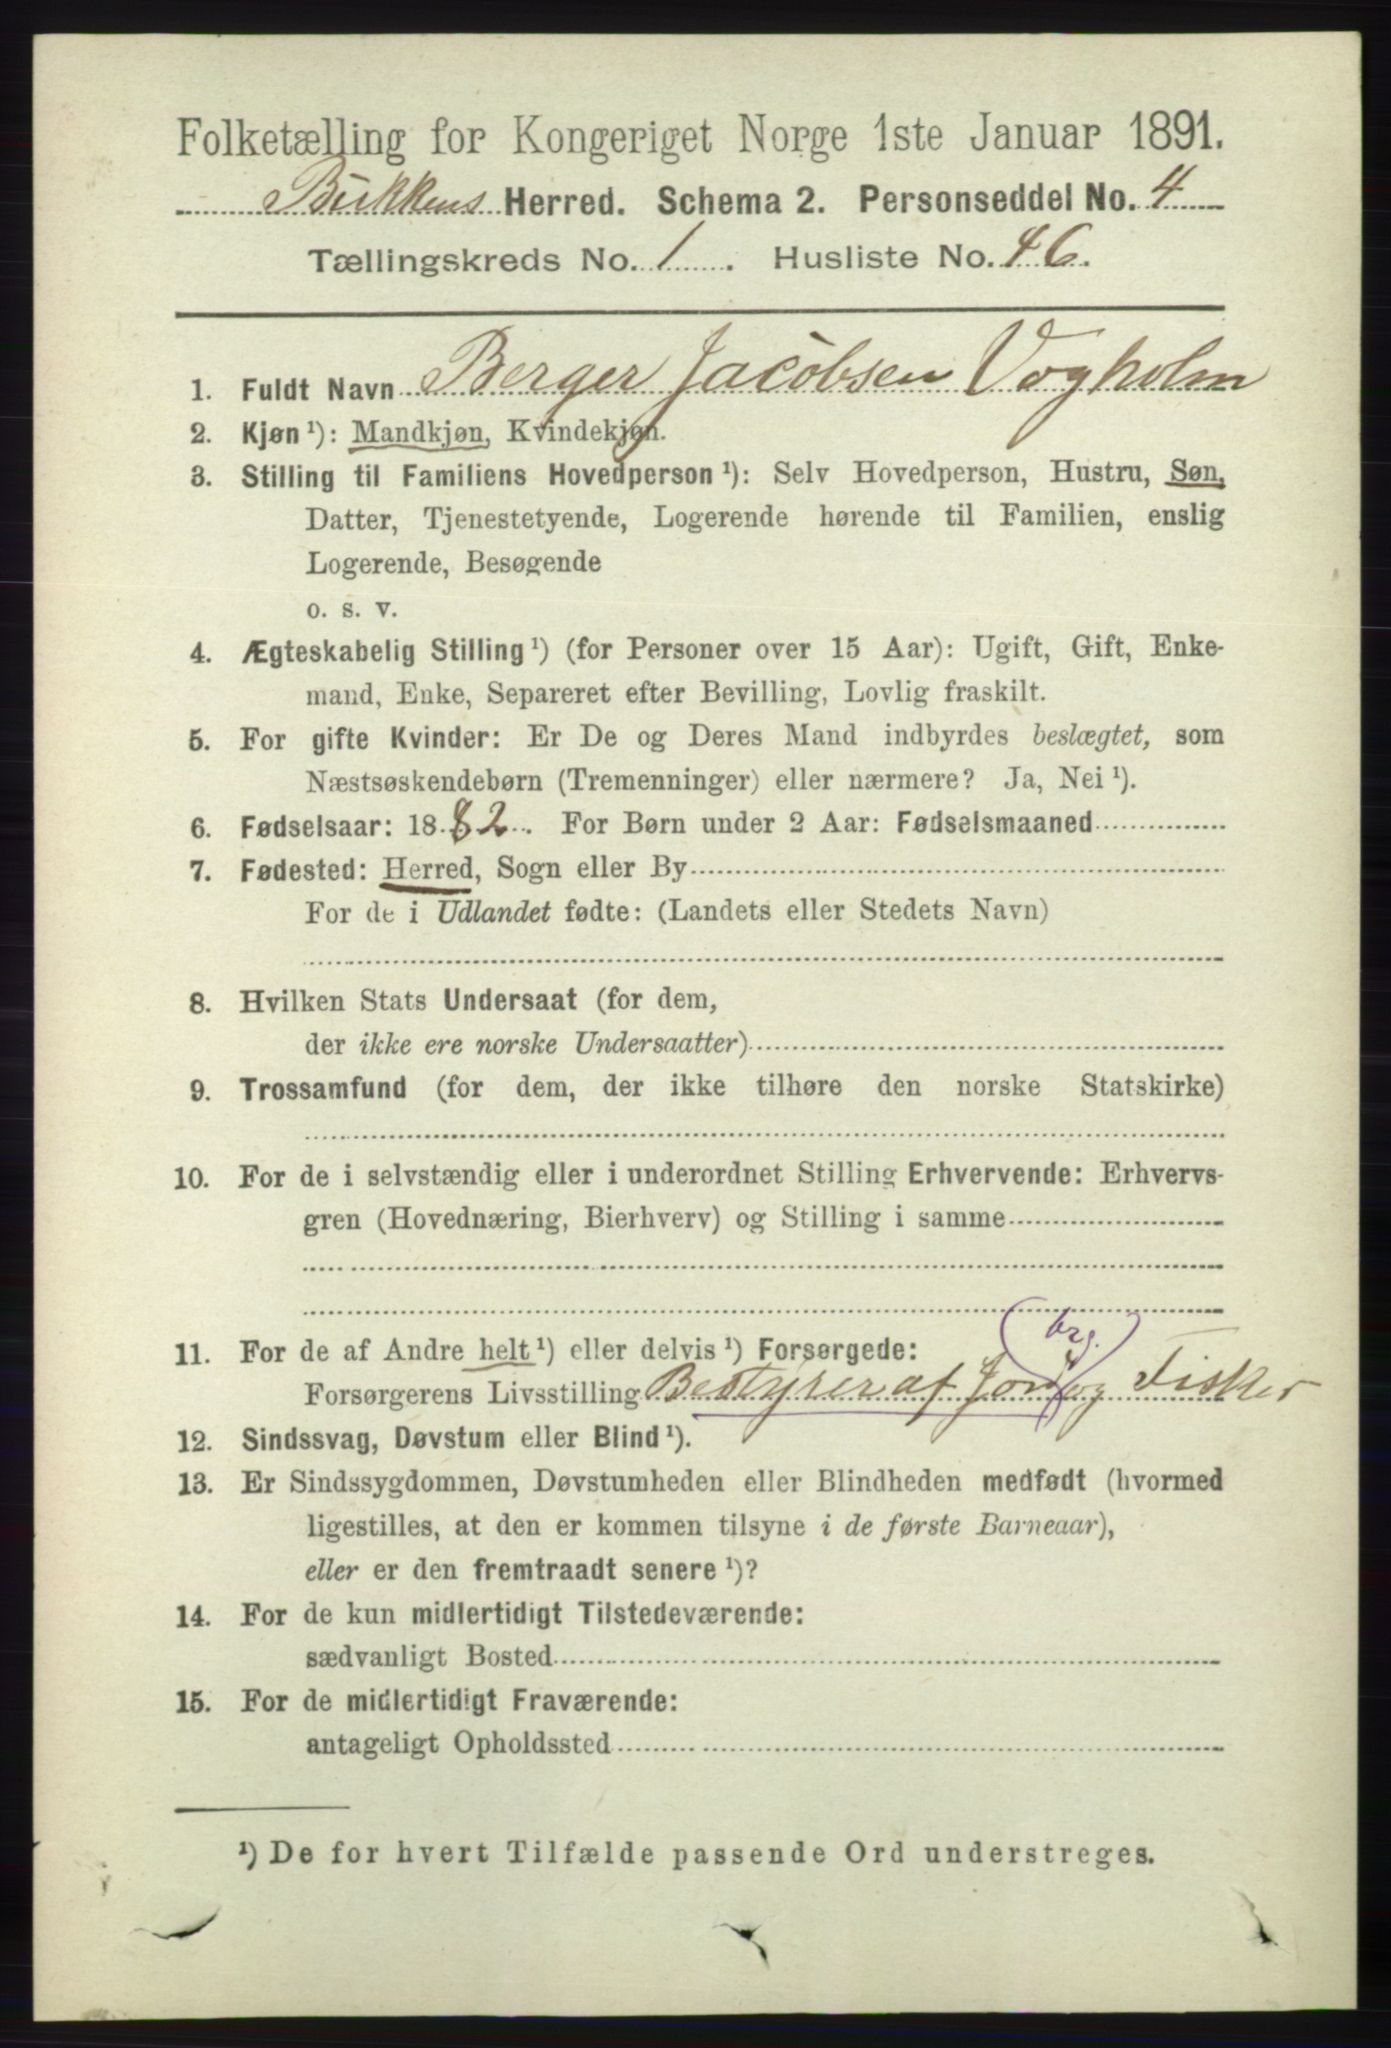 Folketælling for Kongeriget Norge 1ste Januar 1891.
Bukkens Herred. Schema 2. Personseddel No. 4
Tællingskreds No. 1. Husliste No. 46.
1. Fuldt Navn Berger Jacobsen Vogholm
2. Kjøn ¹): Mandkjøn, Kvindekjøn.
3. Stilling til Familiens Hovedperson ¹): Selv Hovedperson, Hustru, Søn,
Datter, Tjenestetyende, Logerende hørende til Familien, enslig
Logerende, Besøgende
o. s. v.
4. Ægteskabelig Stilling ¹) (for Personer over 15 Aar): Ugift, Gift, Enke-
mand, Enke, Separeret efter Bevilling, Lovlig fraskilt.
5. For gifte Kvinder: Er De og Deres Mand indbyrdes beslægtet, som
Næstsøskendebørn (Tremenninger) eller nærmere? Ja, Nei ¹).
6. Fødselsaar: 1882. For Børn under 2 Aar: Fødselsmaaned
7. Fødested: Herred, Sogn eller By
For de i Udlandet fødte: (Landets eller Stedets Navn)
8. Hvilken Stats Undersaat (for dem,
der ikke ere norske Undersaatter)
9. Trossamfund (for dem, der ikke tilhøre den norske Statskirke)
10. For de i selvstændig eller i underordnet Stilling Erhvervende: Erhvervs-
gren (Hovednæring, Bierhverv) og Stilling i samme
brg.
11. For de af Andre helt ¹) eller delvis ¹) Forsørgede:
Forsørgerens Livsstilling Bestyrer af Jord og Fisker
12. Sindssvag, Døvstum eller Blind ¹).
13. Er Sindssygdommen, Døvstumheden eller Blindheden medfødt (hvormed
ligestilles, at den er kommen tilsyne i de første Barneaar),
eller er den fremtraadt senere ¹)?
14. For de kun midlertidigt Tilstedeværende:
sædvanligt Bosted
15. For de midlertidigt Fraværende:
antageligt Opholdssted
¹) De for hvert Tilfælde passende Ord understreges.